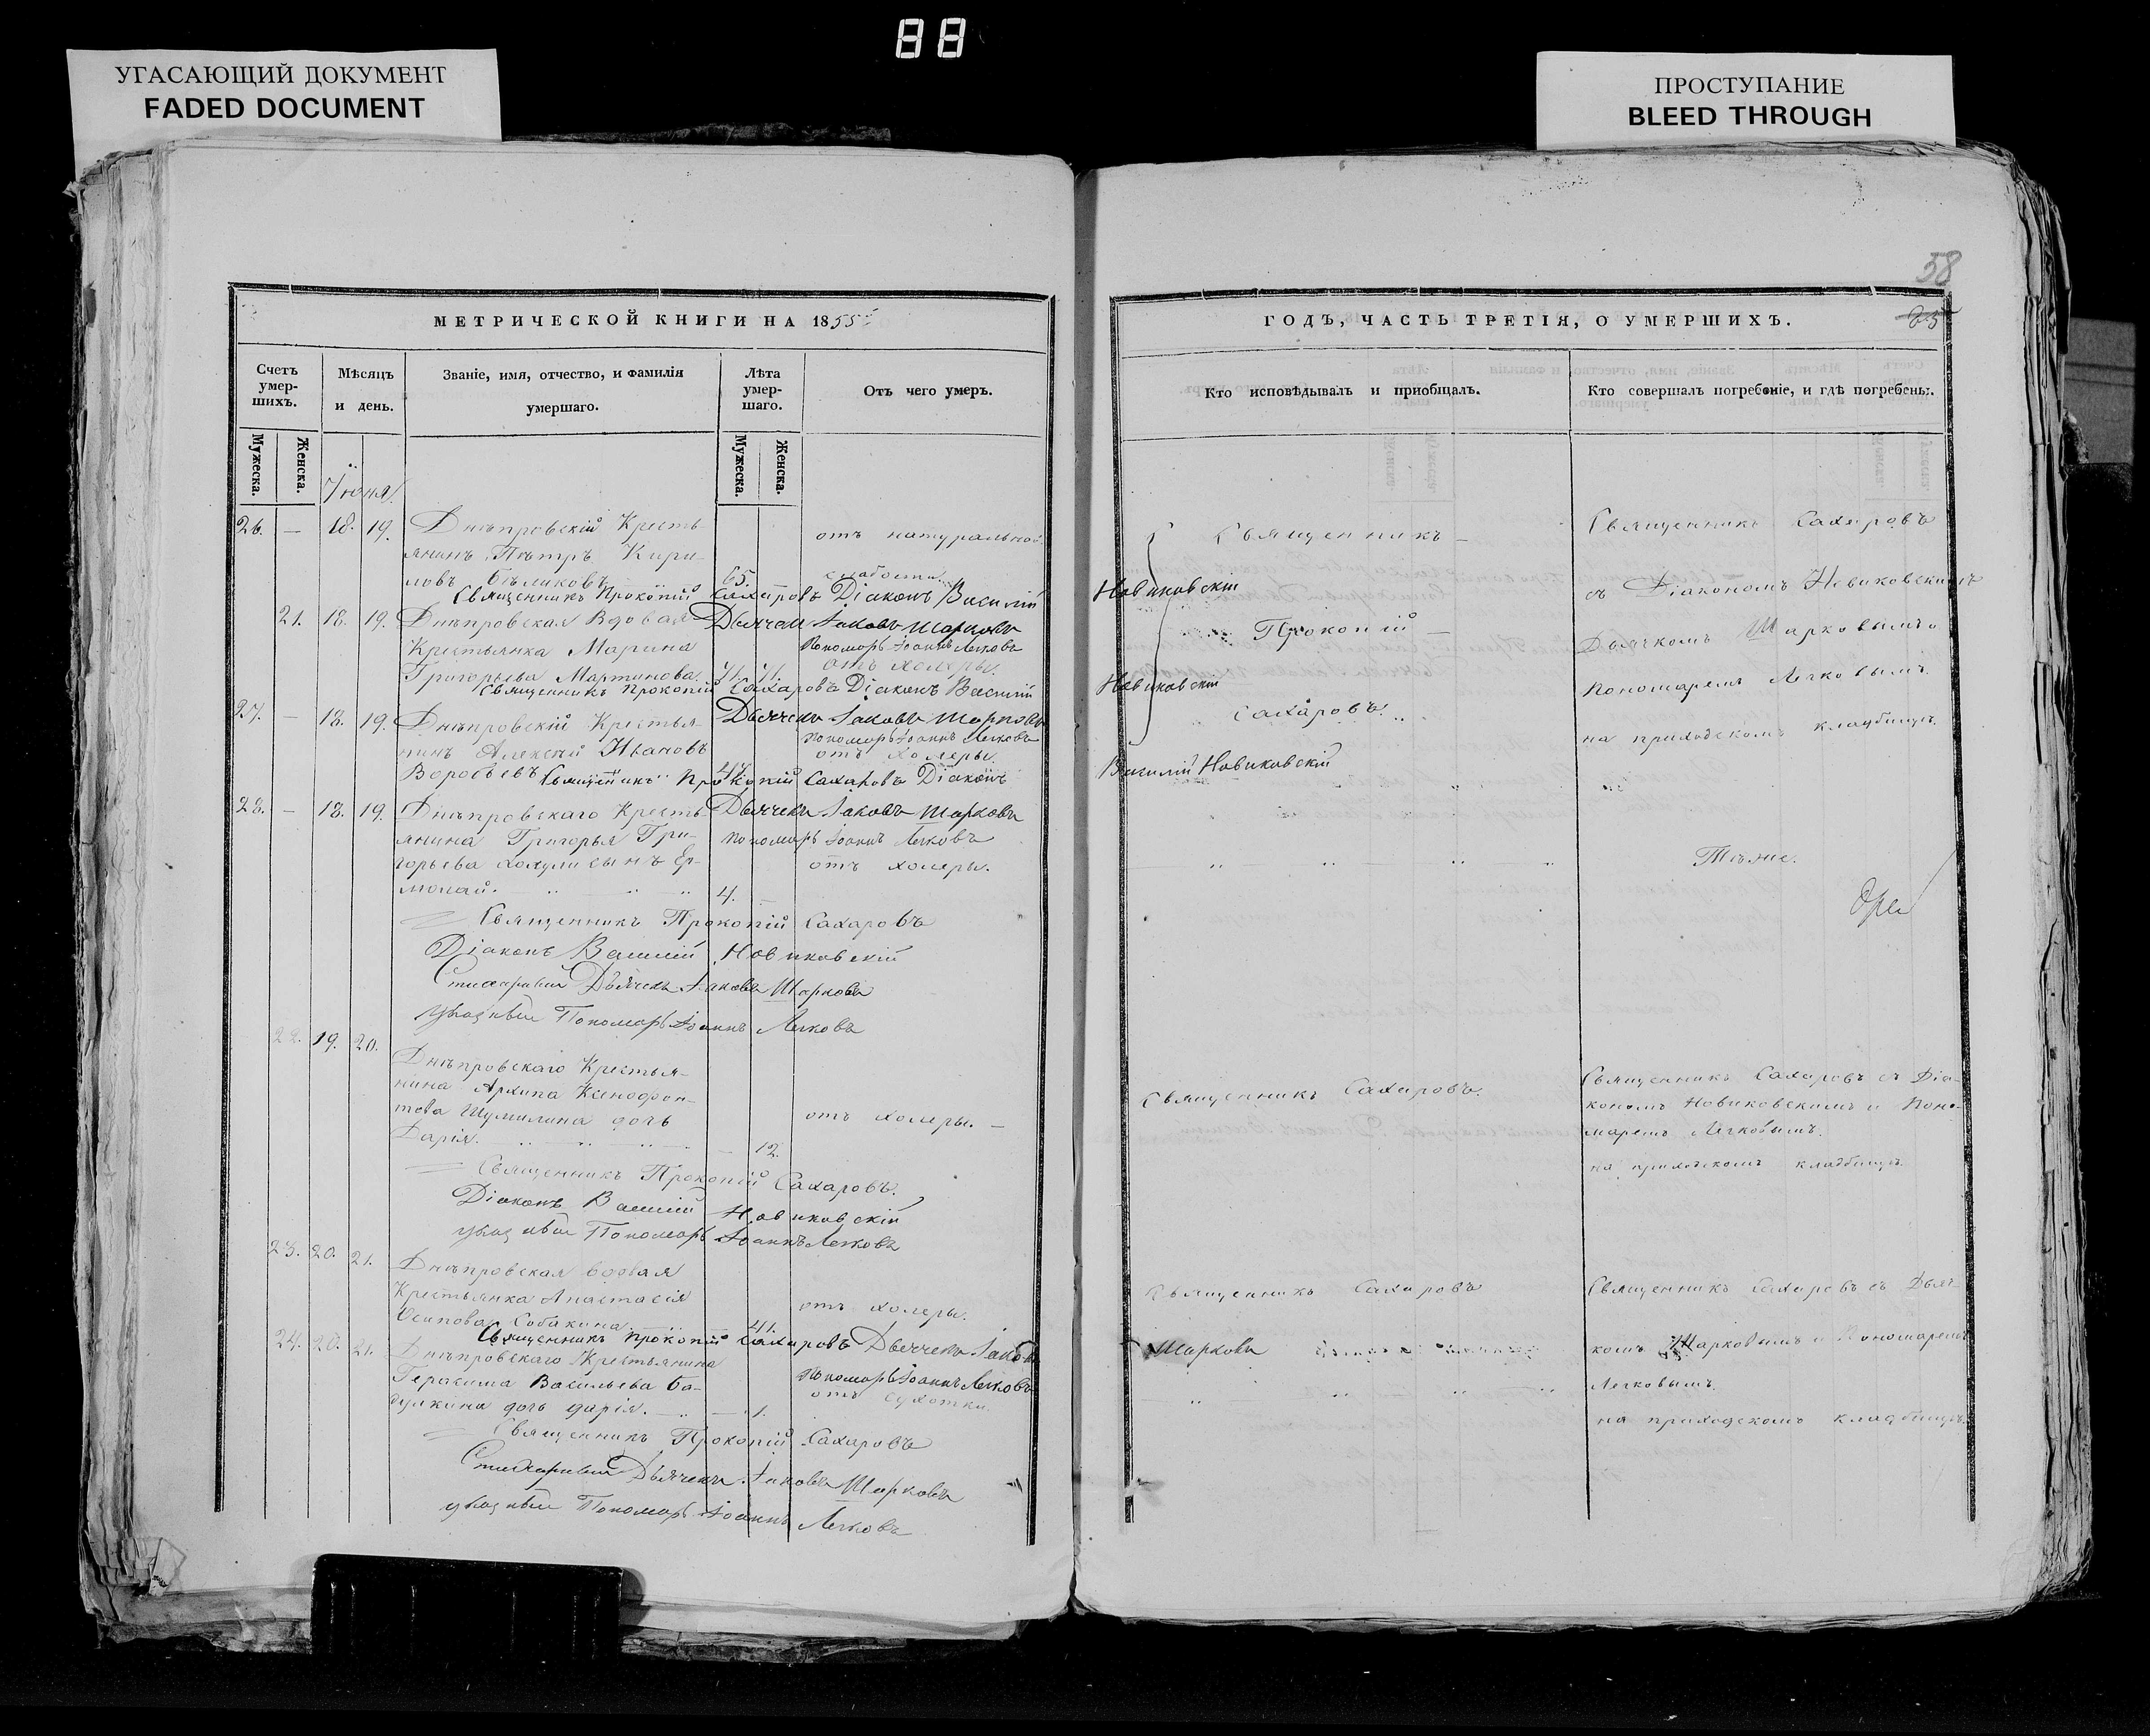 88
УГАСАЮЩИЙ ДОКУМЕНТ
FADED DOCUMENT
ПРОСТУПАНИЕ
BLEED THROUGH
МЕТРИЧЕСКОЙ КНИГИ НА 1855
Счетъ умер-шихъ.
Мужеска.
Женска.
Мѣсяцъ и день.
Званіе, имя, отчество, и фамилія умершаго.
Лѣта умер-шаго.
Мужеска.
Женска.
Отъ чего умеръ.
Іюня
26. — 18. 19. Днѣпровскій Кресть-
янинъ Пѣтръ Кири- отъ натуральной
ловъ Бѣликовъ 65. слабости.
Священникъ Прокопій Сахаровъ Діаконъ Василій
21. 18. 19. Днѣпровская Вдовая Дьячекъ Іаковъ Шарковъ
Крестьянка Марина Пономарь Іоаннъ Легковъ
Григорьева Мартинова. отъ холеры.
Священникъ Прокопій Сахаровъ Діаконъ Василій
27. — 18. 19. Днѣпровскій Крестья- Дьячекъ Іаковъ Шарковъ
нинъ Алексѣй Ивановъ Пономарь Іоаннъ Легковъ
отъ холеры.
Воробьевъ Священникъ Прокопій Сахаровъ Діаконъ
28. — 18. 19. Днѣпровскаго Кресть- Дьячекъ Іаковъ Шарковъ
янина Григорья Гри- Пономарь Іоаннъ Легковъ
горьева сынъ Ер- отъ холеры.
молай. 4. —
Священникъ Прокопій Сахаровъ
Діаконъ Василій Новиковскій
Стихарный Дьячекъ Іаковъ Шарковъ
Указный Пономарь Іоаннъ Легковъ
22. 19. 20.
Днѣпровскаго Крестья-
нина Архипа Ксенофон-
това Шумилина дочь отъ холеры. —
Дарія. — 12.
Священникъ Прокопій Сахаровъ.
Діаконъ Василій Новиковскій
Указный Пономарь Іоаннъ Легковъ
23. 20. 21. Днѣпровская вдовая
Крестьянка Анастасія
Осипова Собакина. 41. отъ холеры.
Священникъ Прокопій Сахаровъ Дьячекъ Іаковъ
24. 20. 21. Днѣпровскаго Крестьянина
Герасима Васильева Ба- Пономарь Іоаннъ Легковъ
дулкина дочь Дарія. — 1. отъ сухотки.
Священникъ Прокопій Сахаровъ
Стихарный Дьячекъ Іаковъ Шарковъ
Указный Пономарь Іоаннъ Легковъ
58
ГОДЪ, ЧАСТЬ ТРЕТІЯ, О УМЕРШИХЪ.
Кто исповѣдывалъ и пріобщалъ.
Кто совершалъ погребеніе, и гдѣ погребены.
Священникъ
Новиковскій
Прокопій
Новиковскій
Сахаровъ.
Василій Новиковскій
Священникъ Сахаровъ
съ Діакономъ Новиковскимъ
Дьячкомъ Шарковымъ и
Пономаремъ Легковымъ.
на приходскомъ кладбищѣ.
Тѣже.
Священникъ Сахаровъ.
Священникъ Сахаровъ съ Діа-
кономъ Новиковскимъ и Поно-
маремъ Легковымъ.
на приходскомъ кладбищѣ.
Священникъ Сахаровъ
Шарковъ
Священникъ Сахаровъ съ Дьяч-
комъ Шарковымъ и Пономаремъ
Легковымъ.
на приходскомъ кладбищѣ.